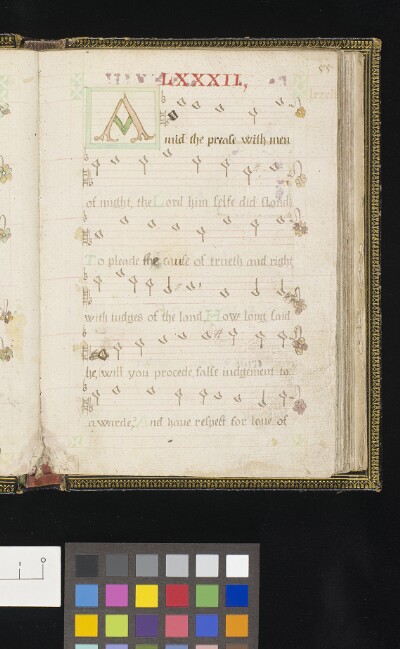 LXXXII,
55
Amid the prease with men
of might, the Lord him selfe did stand:
To pleade the cause of trueth and right
with iudges of the land. How long said
he, will you procede, false iudgement to
awarde? And haue respect for loue of